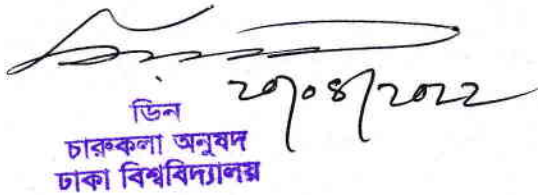 ২০/০৪/২০২২
ডিন
চারুকলা অনুষদ
ঢাকা বিশ্ববিদ্যালয়